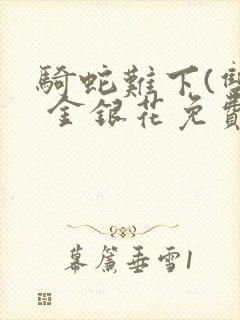 騎蛇難下(雙
金銀花免費
幕簾垂雪1